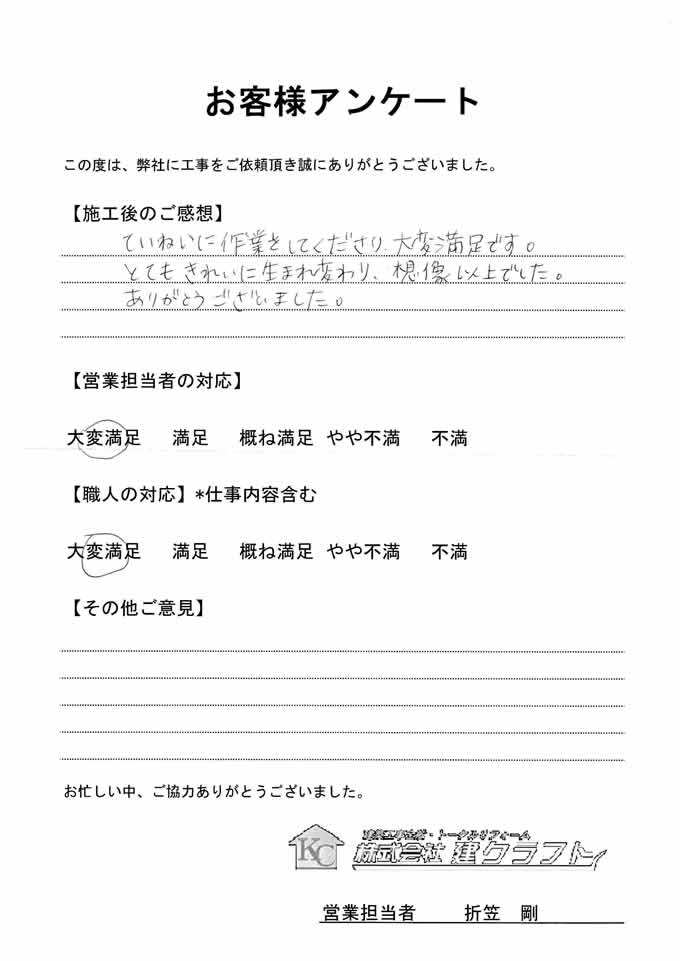 お客様アンケート
この度は、弊社に工事をご依頼頂き誠にありがとうございました。
【施工後のご感想】
ていねいに作業をしてくださり、大変満足です。
とてもきれいに生まれ変わり、想像以上でした。
ありがとうございました。
【営業担当者の対応】
大変満足 満足 概ね満足 やや不満 不満
【職人の対応】*仕事内容含む
大変満足 満足 概ね満足 やや不満 不満
【その他ご意見】
お忙しい中、ご協力ありがとうございました。
KC
建築工事全般・トータルリフォーム
株式会社 建クラフト
営業担当者 折笠 剛